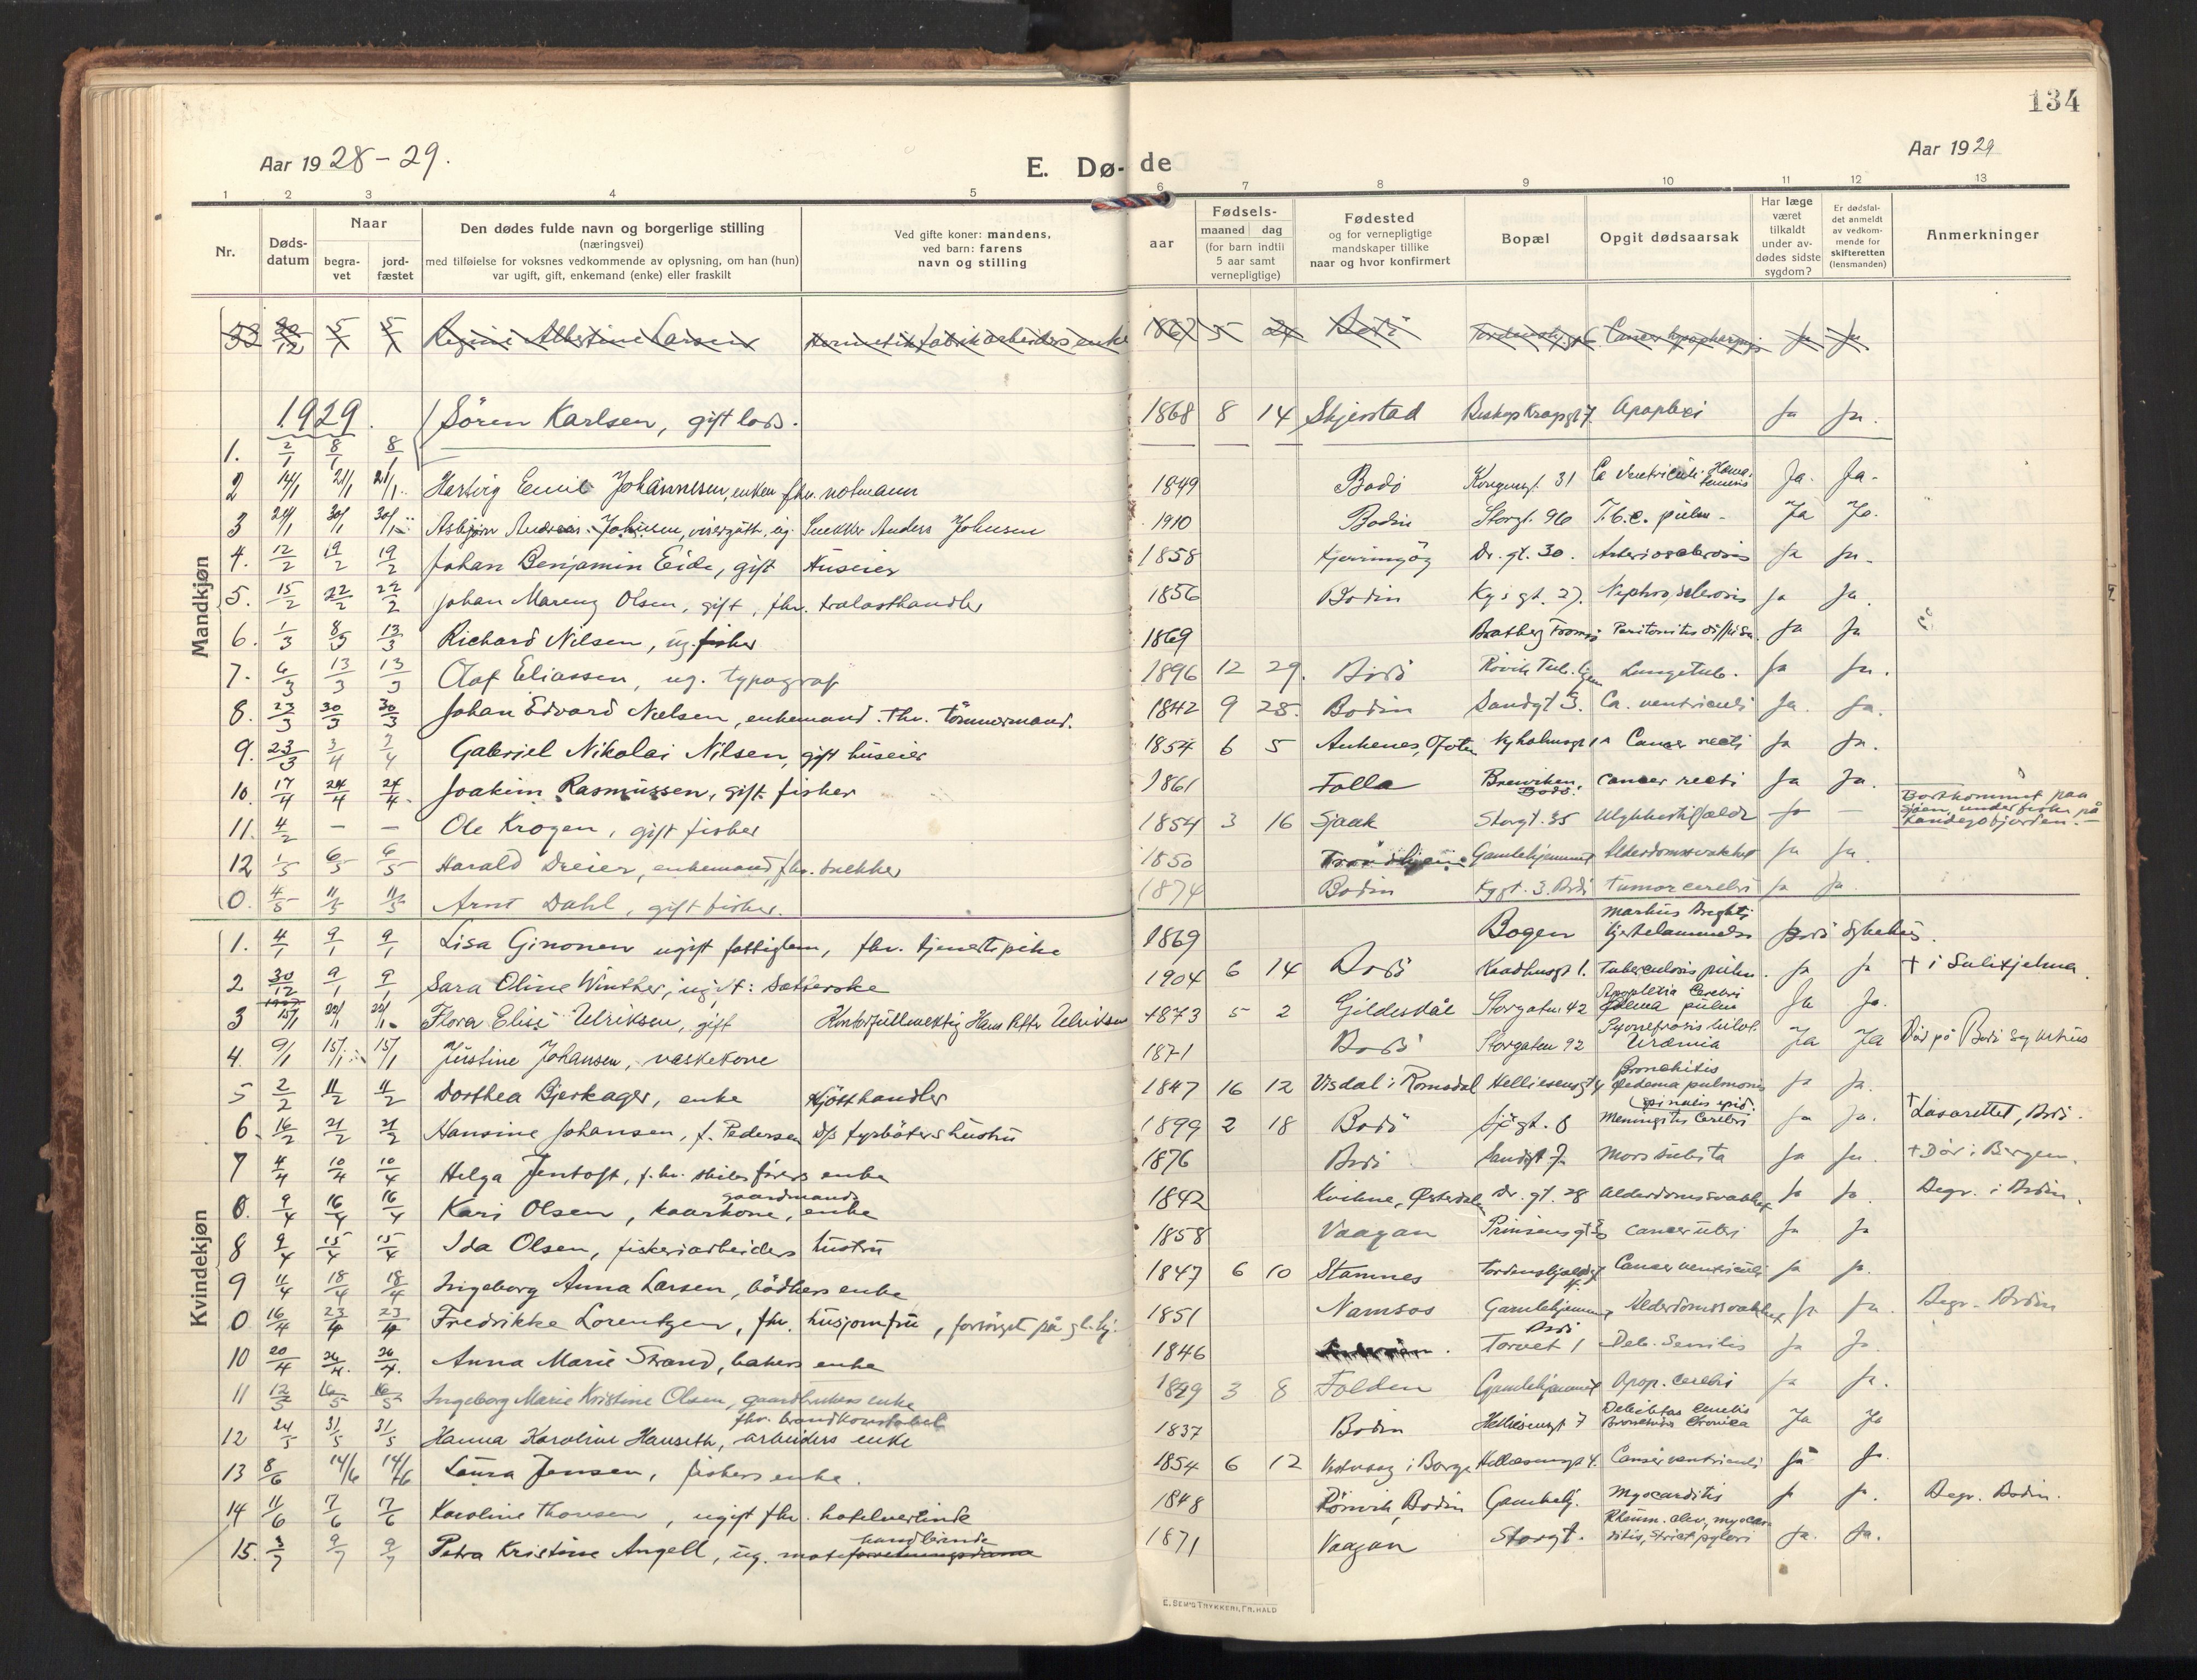 134
Aar 1928-29.
E. Dø-de
Aar 1929
1 2 3 4 5 6 7 8 9 10 11 12 13
Nr. Døds-datum Naar begra-vet jord-fæstet
Den dødes fulde navn og borgerlige stilling (næringsvei) med tilføielse for voksnes vedkommende av oplysning, om han (hun) var ugift, gift, enkemand (enke) eller fraskilt
Ved gifte koner: mandens, ved barn: farens navn og stilling
aar Fødsels- maaned dag (for barn indtil 5 aar samt vernepligtige)
Fødested og for vernepligtige mandskaper tillike naar og hvor konfirmert
Bopæl
Opgit dødsaarsak
Har læge været tilkaldt under av-dødes sidste sygdom?
Er dødsfal-det anmeldt av vedkom-mende for skifteretten (lensmanden)
Anmerkninger
Mandkjøn
33 30/12 5/1 5/1 Regine Albertine Larsen Hermetikfabrikarbeiders enke 1867 5 24 Bodö Cancer Ja Ja
1929.
1. 2/1 8/1 8/1 Sören Karlsen, gift lods. 1868 8 14 Skjerstad Apoplexi Ja Ja.
2 14/1 21/1 21/1 Hartvig Emil Johannesen, enkem. fhv. notmann 1849 Bodö Kongensgt. 31 Ca Ventriculi Ja. Ja.
3 30/1 30/1 Asbjørn Andreas Johnsen, visergutt, ug. Snekker Anders Johnsen 1910 Bodin Storgt. 96 T.b.c. pulm - Ja Ja.
4. 12/2 19/2 19/2 Johan Benjamin Eide, gift Huseier 1858 Kjerringöy Dr. gt. 30. Arteriosclerosis Ja Ja.
5. 15/2 22/2 22/2 Johan Mareng Olsen, gift, fhv. tralasthandler 1856 Bodin Nephrosclerosis Ja Ja.
6. 1/3 8/3 13/3 Richard Nilsen, ug. fisker 1869 Peritonitis diffusa. Ja Ja
7. 6/3 13/3 13/3 Olaf Eliassen, ug. typograf 1896 12 29. Bodö Lungetub. Ja Ja.
8. 23/3 30/3 30/3 Johan Edvard Nielsen, enkemand. fhv. tömmermand. 1842 9 28. Bodin Sandgt 3. Ca. ventriculi Ja. Ja.
9. 23/3 3/4 3/4 Gabriel Nikolai Nilsen, gift huseier 1854 6 5 Ankenes, Ofoten Cancer recti Ja Ja.
10. 17/4 24/4 24/4 Joakim Rasmussen, gift fisker 1861 Folla Breiviken, Bodö. Cancer recti Ja Ja.
11. 4/2 - - Ole Krogen, gift fisker 1854 3 16 Sjaak Storgt. 35 Ulykkestilfælde Ja - Bortkommet paa sjöen under fiske på Landegofjorden.
12 1/5 6/5 6/5 Harald Dreier, enkemand, fhv. snekker 1850 Trondhjem Gamlehjemmet Alderdomssvakhet Ja Ja.
0. 4/5 11/5 11/5 Arnt Dahl, gift fisker. 1874 Bodin Tumor cerebri Ja Ja
Kvindekjøn
1. 4/1 9/1 9/1 Lisa Ginonen ugift fattiglem, fhv. tjenestepike 1869 Bogen Morbus Brighti Hjertelammelse Bodö Sykehus.
2 30/12 9/1 9/1 Sara Oline Winther, ugift: Sætterske 1904 6 14 Bodö Raadhusgt 1. Tuberculosis pulm. Ja Ja + i Sulitjelma.
3 15/1 22/1 22/1 Flora Elise Ulriksen, gift Kontorfullmektig Hans Petter Ulriksen 1873 5 2 Gildeskål Storgaten 42 Apoplexia Cerebri Ødema pulm Ja Ja.
4. 9/1 15/1 15/1 Justine Johansen, vaskekone 1871 Bodö Storgaten 92 Uræmia Ja Ja Död på Bodö Sykehus
5 2/2 11/2 11/2 Dorthea Bjerkager, enke Kjötthandler 1847 16 12 Visdal i Romsdal Helliesensgt 4 Bronchitis Oedema pulmonis Ja Ja.
6. 16/2 21/2 21/2 Hansine Johansen, f. Pedersen D/S fyrböters hustru 1899 2 18 Bodö Sjögt. 8 Meningitis Cerebri spinalis epid. Ja Ja. + Lasarettet, Bodö.
7 4/4 10/4 10/4 Helga Jentoft, fhv. skibsförers enke 1876 Bodö Sandgt 7. Mors subita Ja Ja. + Dör i Bergen.
0. 9/4 16/4 16/4 Kari Olsen, kaarkone, gaardmands enke 1842 Kvikne, Østerdalen Dr. gt. 28 Alderdomssvakhet Ja Ja. Begr. i Bodin.
8 9/4 15/4 15/4 Ida Olsen, fiskeriarbeiders hustru 1858 Vaagan Prinsensgt 3 Cancer uteri Ja Ja
9 11/4 18/4 18/4 Ingeborg Anna Larsen, bödkers enke 1847 6 10 Stamnes Cancer ventriculi Ja Ja.
0 16/4 23/4 23/4 Fredrikke Lorentzen, fhv. husjomfru, forsörget på gl.hj. 1851 Namsos Gamlehjemmet Bodö Alderdomssvakhet Ja Ja. Begr. Bodin
10 20/4 26/4. 26/4. Anna Marie Strand, bakers enke 1846 Torvet 1 Deb. Senilis Ja Ja.
11 12/5 16/5 16/5 Ingeborg Marie Kristine Olsen, gaardbrukers enke 1849 3 8 Folden Gamlehjemmet Apop. Cerebri Ja Ja.
12 24/5 31/5 31/5 Hanna Karoline Hanseth, fhv. brandkonstabel arbeiders enke 1837 Bodin Helliesensgt 7 Debilitas Senilis Bronchitis Cronica Ja Ja
13 8/6 14/6 14/6 Laura Jensen, fiskers enke. 1854 6 12 i Borge Helliesensgt 4. Cancer ventriculi Ja Ja.
14 11/6 17/6 17/6 Karoline Thonsen, ugift fhv. hotelvertinde 1848 Rönvik, Bodin Gamlehj. Myocarditis Ja Ja. Begr. Bodin.
15. 3/7 9/7 9/7 Petra Kristine Angell, ug. moteforretningsdrame handlerinde 1871 Vaagan Storgt. Rheum. chr., myocarditis, Strict. pylori Ja. Ja.
E. SEM'S TRYKKERI, FR.HALD